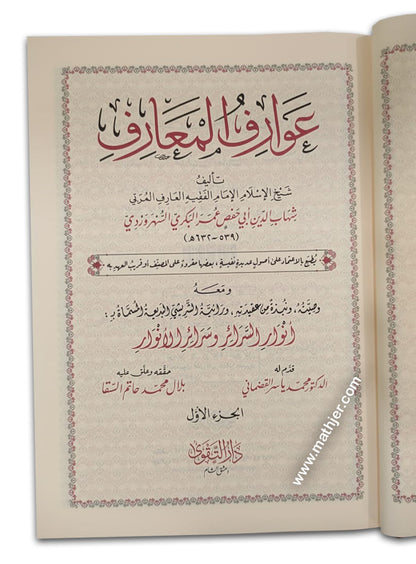 عوارف المعارف
تأليف
شيخ الإسلام الإمام الفقيه العارف المربي
شهاب الدين أبي حفص عمر البكري السهروردي
(٥٣٩-٦٣٢هـ)
يطبع بالاعتماد على أصول فريدة نفيسة، بعضها مقروء على المصنف أو قريب العهد به
ومعه
وصيته، ونبذة من عقيدته، ورائية الشريشي البديعة المسماة بـ:
أنوار السرائر وسرائر الأنوار
قدم له
الدكتور محمد ياسر القضماني
حققه وعلق عليه
بلال محمد حاتم السقا
الجزء الأول
دار التقوى
دمشق الشام
www.mathjer.com